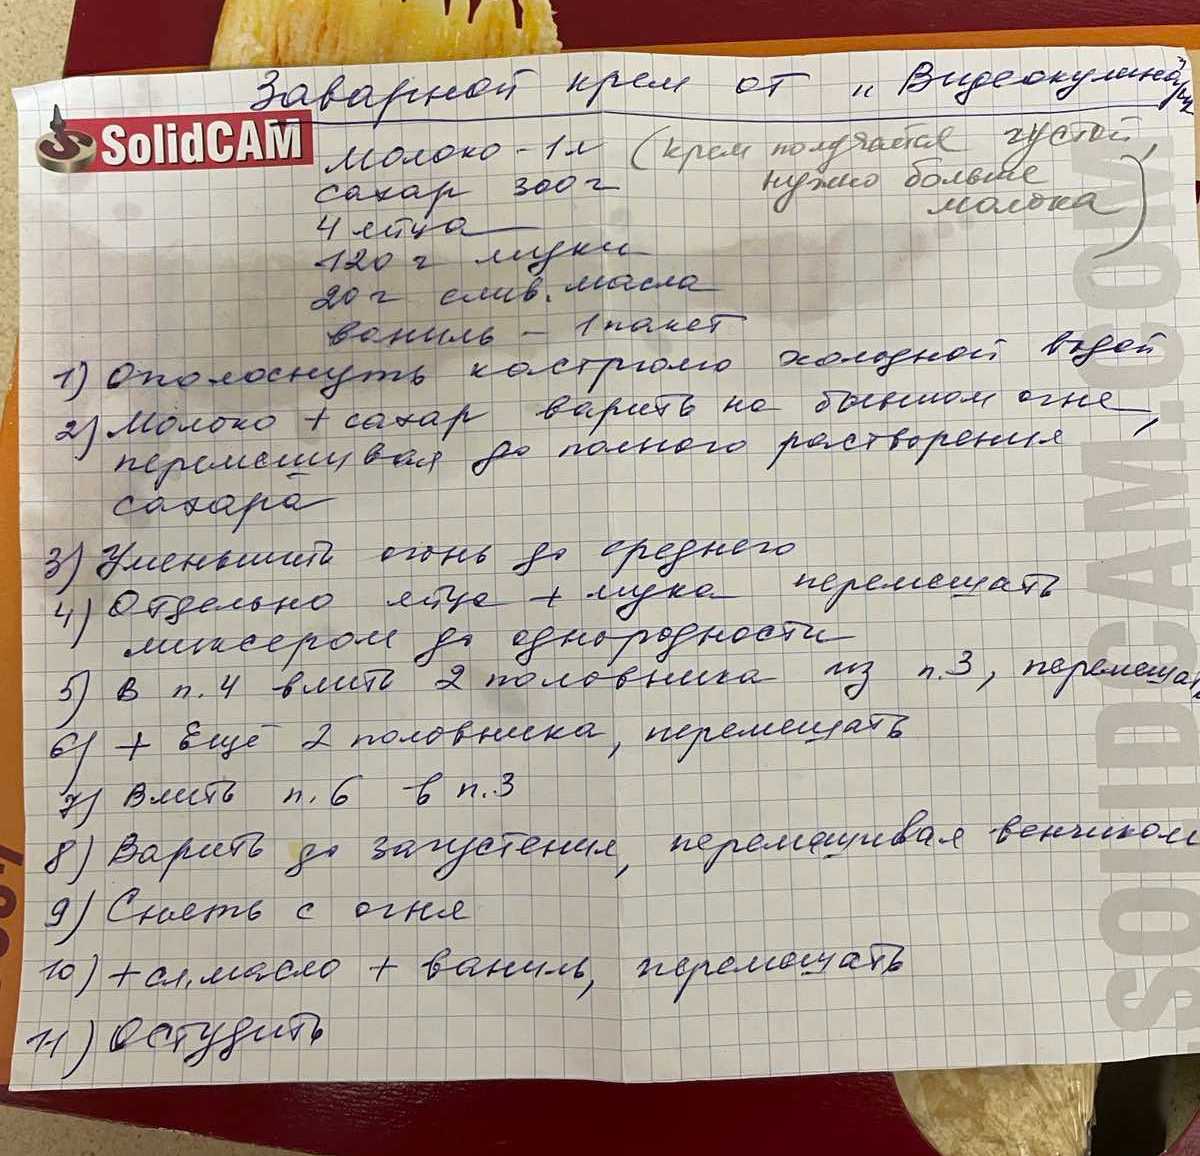 Заварной крем от "Видеокулинарии
SolidCAM
молоко - 1 л (крем получается густой,
нужно больше
молока)
сахар 300 г
4 яйца
120 г муки
20 г слив. масла
ваниль - 1 пакет
1) Ополоснуть кастрюлю холодной водой
2) Молоко + сахар варить на большом огне,
перемешивая до полного растворения
сахара
3) Уменьшить огонь до среднего
4) Отдельно яйца + мука перемешать
миксером до однородности
5) В п.4 влить 2 половника из п.3, перемешать
6) + Ещё 2 половника, перемешать
7) Влить п.6 в п.3
8) Варить до загустения, перемешивая венчиком
9) Снять с огня
10) + сл. масло + ваниль, перемешать
11) Остудить
SOLIDCAM.COM